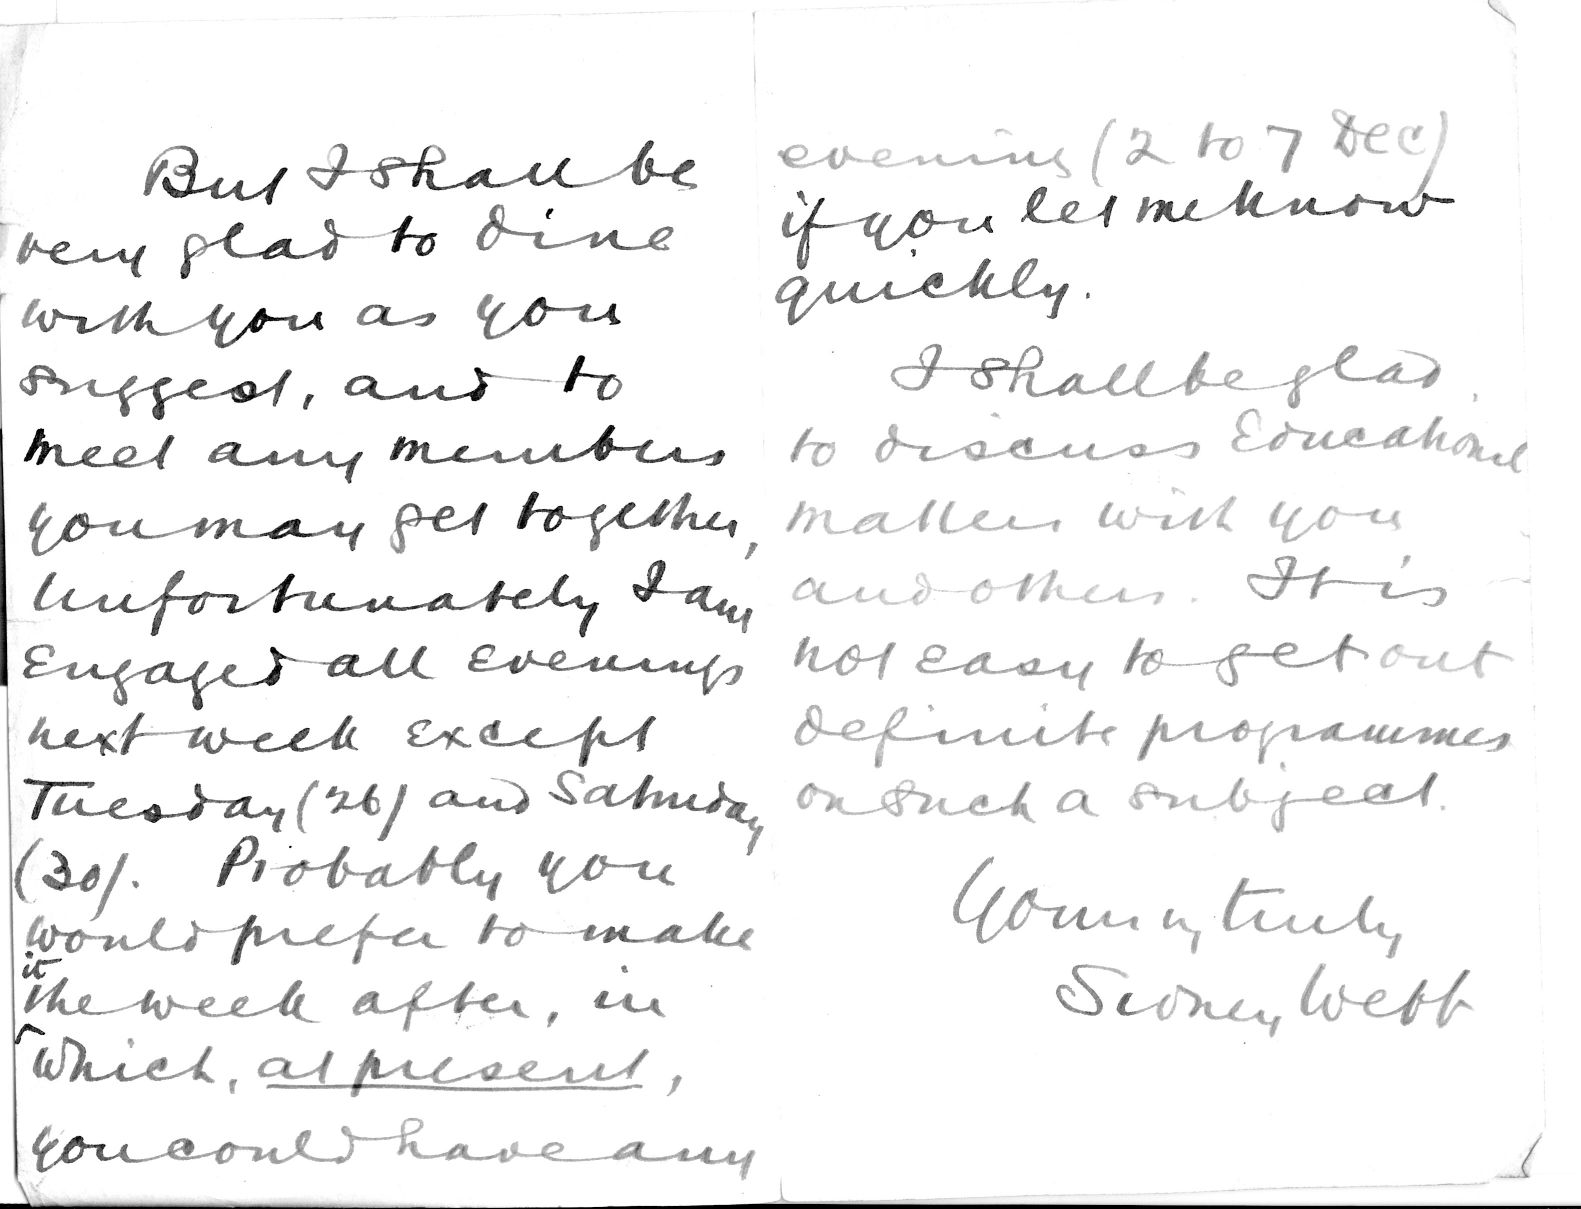 But I shall be
very glad to dine
with you as you
suggest, and to
meet any members
you may get together,
Unfortunately I am
engaged all evenings
next week except
Tuesday (26) and Saturday
(30). Probably you
would prefer to make
it
the week after, in
which, at present,
you could have any
evening (2 to 7 Dec)
if you let me know
quickly.
I shall be glad
to discuss Educational
matters with you
and others. It is
not easy to get out
definite programmes
on such a subject.
Yours very truly
Sidney Webb